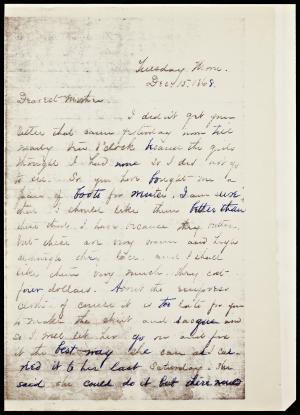 Tuesday Morn.
Dec 15, 1868.
Dearest Mother
I didn't get your
letter that came yesterday morn till
nearly two o'clock because the girls
thought I had none so I did not go
to see. So you have bought me a
pair of boots for winter. I am sure
that I should like them better than
I have because they
but these are very warm and high
enough they lace, and I shall
like them very much. They cost
four dollars. About the
of course it is too late for you
to make the skirt and sacque and
so I will let her go on and
it the best way she can as I
it to her last Saturday. She
said she could do it but there